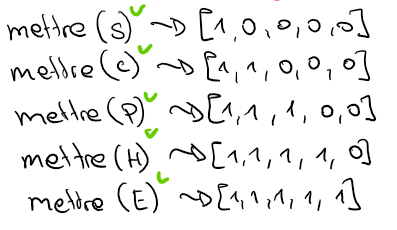 mettre (S) ✓ ~> [1,0,0,0,0]
mettre (C) ✓ ~> [1,1,0,0,0]
mettre (P) ✓ ~> [1,1,1,0,0]
mettre (H) ✓ ~> [1,1,1,1,0]
mettre (E) ✓ ~> [1,1,1,1,1]